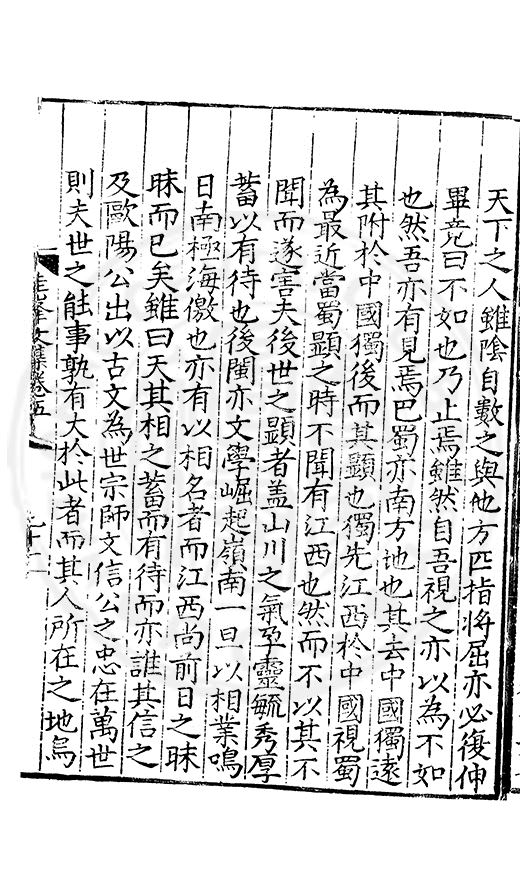 天下之人雖陰自數之與他方匹指將屈亦必復伸
畢竟曰不如也乃止焉雖然自吾視之亦以為不如
也然吾亦有見焉巴蜀亦南方地也其去中國獨遠
其附於中國獨後而其顯也獨先江西於中國視蜀
為最近當蜀顯之時不聞有江西也然而不以其不
聞而遂害夫後世之顯者盖山川之氣孕靈毓秀厚
蓄以有待也後閩亦文學崛起嶺南一旦以相業鳴
日南極海徼也亦有以相名者而江西尚前日之昧
昧而已矣雖曰天其相之蓄而有待而亦誰其信之
及歐陽公出以古文為世宗師文信公之忠在萬世
則夫世之能事孰有大於此者而其人所在之地烏
峯文集卷五